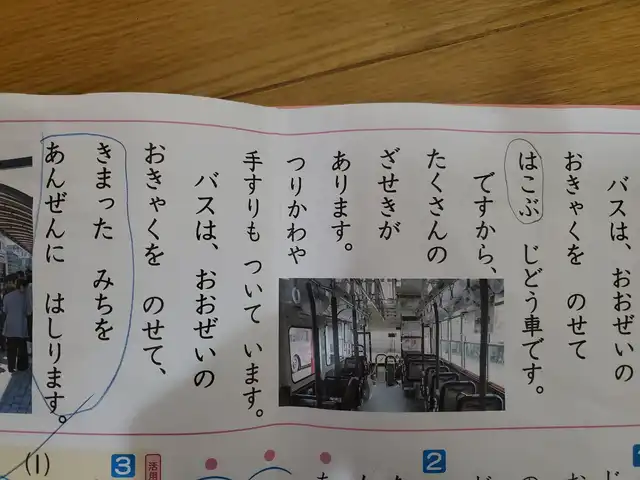 バスは、おおぜいの
おきゃくを のせて
はこぶ じどう車です。
ですから、
たくさんの
ざせきが
あります。
つりかわや
手すりも ついて います。
バスは、おおぜいの
おきゃくを のせて、
きまった みちを
あんぜんに はしります。
2
活用
3
(1)